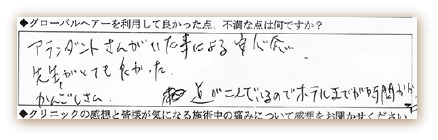 ◆グローバルヘアーを利用して良かった点、不満な点は何ですか？
アテンダントさんがいた事による安心感
先生がとても良かった。
かんごしさん 道がこんでいるのでホテルまでが時間がかかる
◆クリニックの感想と皆様が気になる施術中の痛みについて感想をお聞かせください